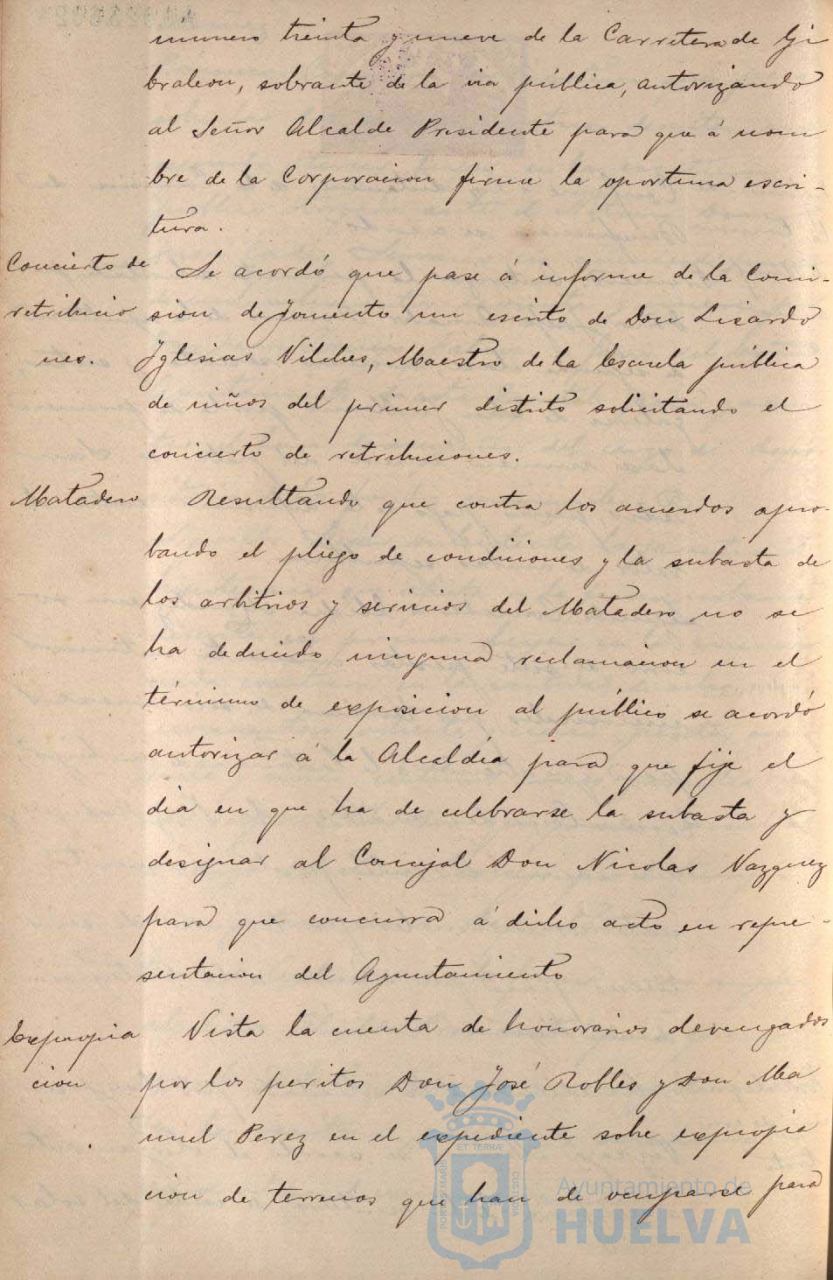 numero treinta y nueve de la Carretera de Gi
braleon, sobrante de la via pública, autorizando
al Señor Alcalde Presidente para que á nom
bre de la Corporacion firme la oportuna escri-
tura.
Concierto de
retribucio
nes.
Se acordó que pase á informe de la Comi-
sion de Fomento un escrito de Don Lisardo
Yglesias Vilches, Maestro de la Escuela pública
de niños del primer distrito solicitando el
concierto de retribuciones.
Matadero
Resultando que contra los acuerdos apro-
bando el pliego de condiciones y la subasta de
los arbitrios y servicios del Matadero no se
ha deducido ninguna reclamacion en el
término de exposicion al público se acordó
autorizar á la Alcaldía para que fije el
dia en que ha de celebrarse la subasta y
designar al Concejal Don Nicolas Vazquez
para que concurra á dicho acto en repre-
sentacion del Ayuntamiento
Expropia
cion
Vista la cuenta de honorarios devengados
por los peritos Don José Robles y Don Ma
nuel Perez en el expediente sobre expropia
cion de terrenos que han de ocuparse para
Ayuntamiento de
HUELVA